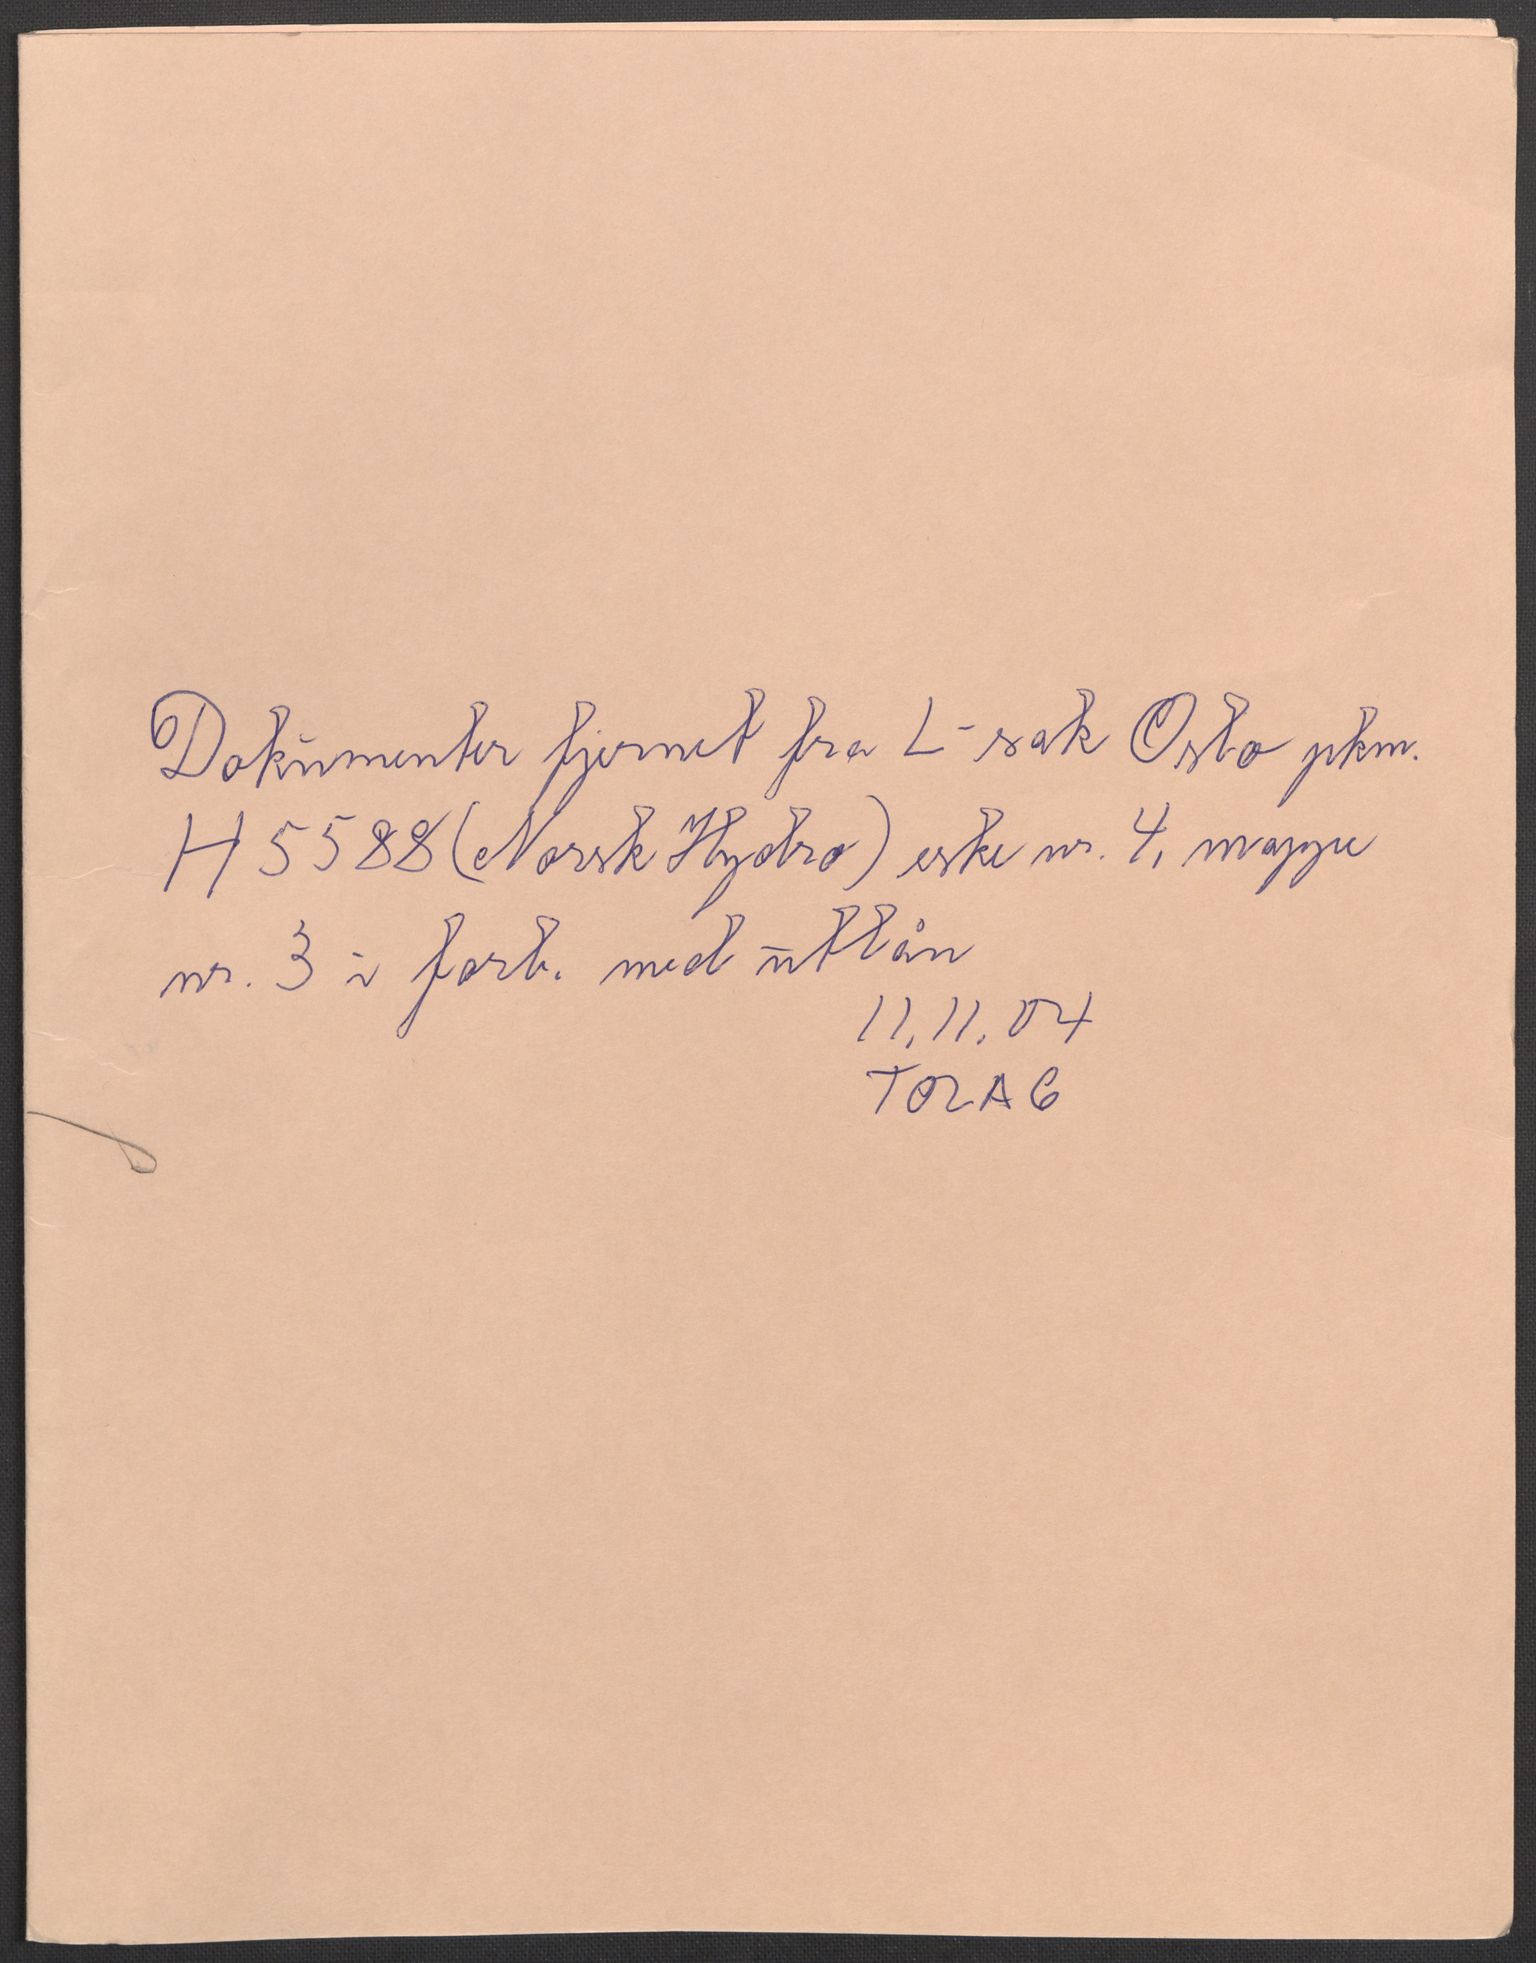 Dokumenter fjernet fra L-sak Oslo pkm.
H 5588 (Norsk Hydro) eske nr. 4, mappe
nr. 3 i forb. med utlån
11.11.04
TORAG